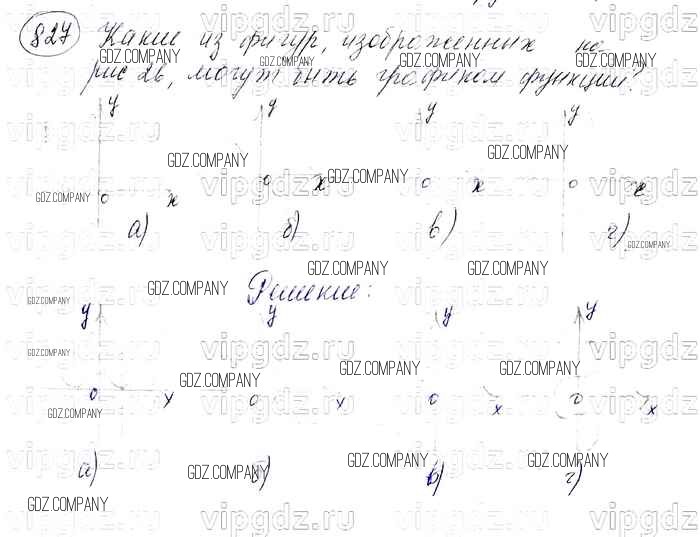 827 Какие из фигур, изображенных на
рис 26, могут быть графиком функции?
y y y y
0 x 0 x 0 x 0 x
а) б) в) г)
Решение:
y y y y
0 x 0 x 0 x 0 x
а) б) в) г)
GDZ.COMPANY
vipgdz.ru